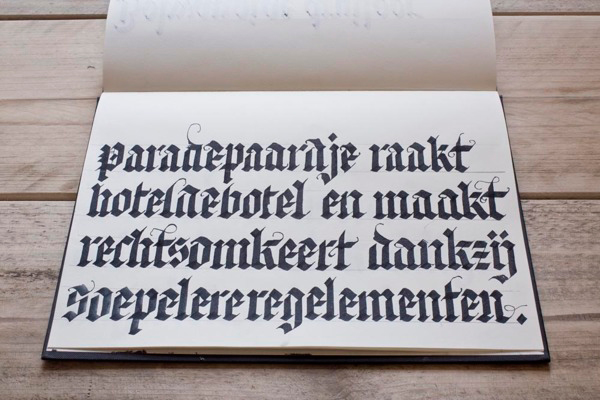 paradepaardje raakt
hoteldebotel en maakt
rechtsomkeert dankzij
soepelereregelementen.